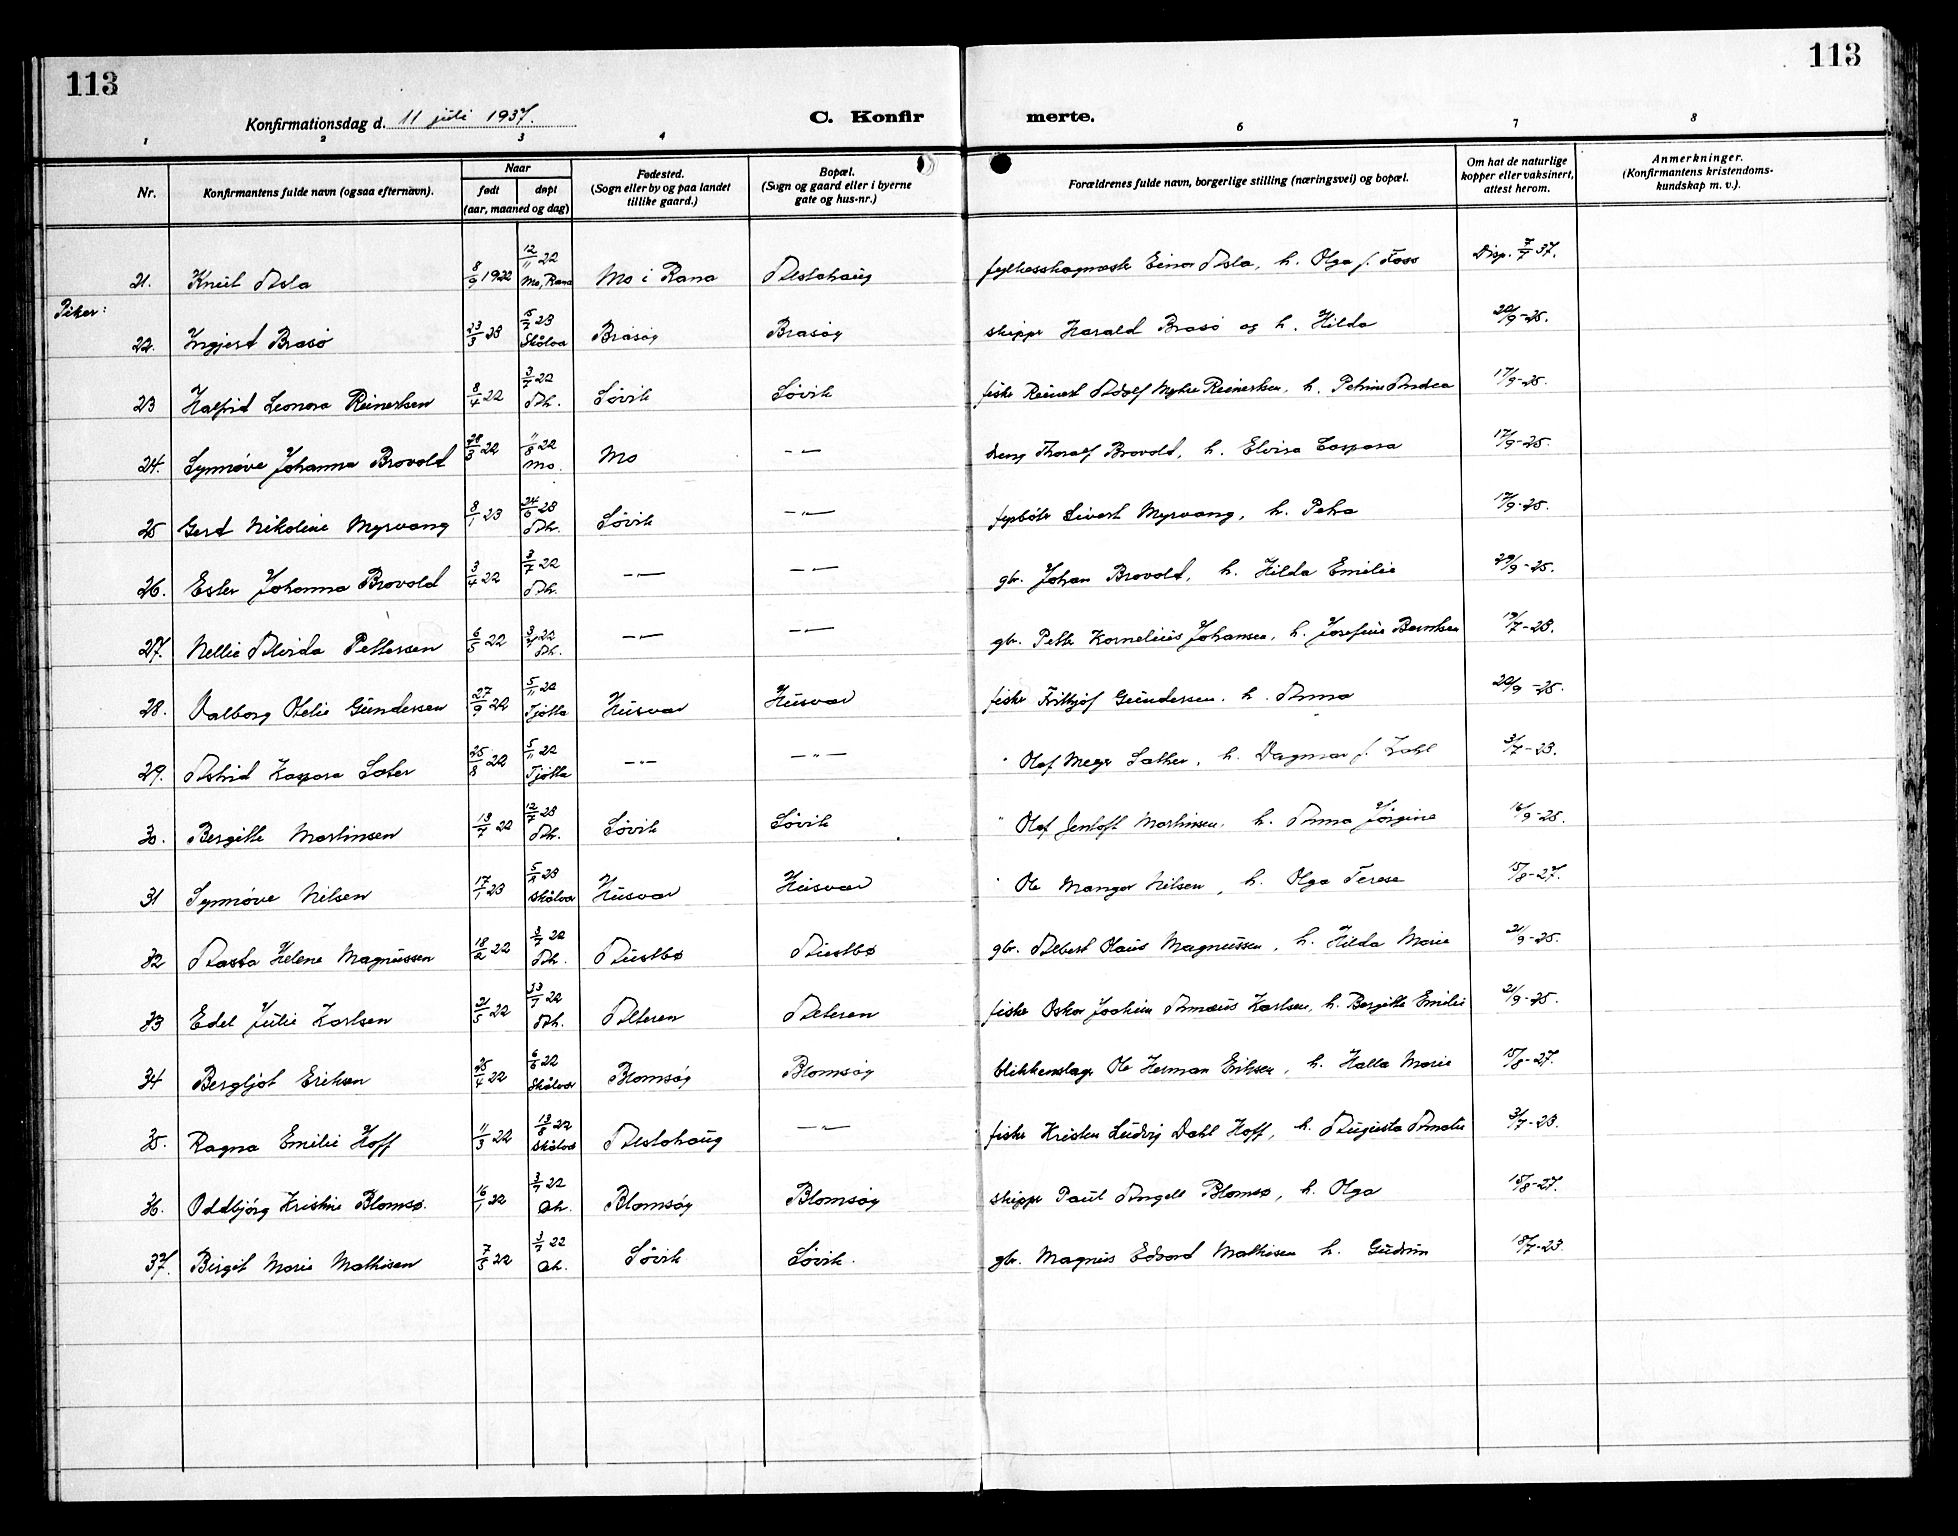 113
113
Konfirmationsdag d. 11 juli 1937.
C. Konfirmerte.
1 2 3 4 6 7 8
Nr.
Konfirmantens fulde navn (ogsaa efternavn).
Naar
født døpt
(aar, maaned og dag)
Fødested.
(Sogn eller by og paa landet
tillike gaard.)
Bopæl.
(Sogn og gaard eller i byerne
gate og hus-nr.)
Forældrenes fulde navn, borgerlige stilling (næringsvei) og bopæl.
Om hat de naturlige
kopper eller vaksinert,
attest herom.
Anmerkninger.
(Konfirmantens kristendoms-
kundskap m. v.).
21. Knut Asla 8/9 1922 12/11 22 Mo, Rana Mo i Rana Alstahaug Einar Asla, h. Olga f. Foss Disp. 7/7 37.
Piker:
22. Ingjerd Brasø 23/3 23 Skålvær Brasøy Brasøy skipper Harald Brasø og h. Hilda
23 Halfrid Leonora Reinertsen 8/4 22 3/7 22 Ah. Søvik Søvik fisker Reinert Adolf Reinertsen, h. Petrine Andrea 17/9-25.
24. Synnøve Johanna Brovold 28/3 22 11/8 22 Mo. Mo -"- Brovold, h. Elvira Caspara 17/9-25.
25 Gerd Nikoline Myrvang 8/1 23 24/6 23 Ah. Søvik -"- fyrbøter Sivert Myrvang, h. Petra 17/9-25.
26. Ester Johanna Brovold 3/4 22 3/7 22 Ah. -"- -"- gbr. Johan Brovold, h. Hilda Emilie 29/9-25.
27. Nellie Alvida Pettersen 6/5 22 Ah. -"- -"- gbr. Petter Kornelius Johansen, h. Josefine Berntsen
28. Valborg Otelie Gundersen 27/9 22 5/11 22 Tjøtta Husvær Husvær fisker Fritjof Gundersen. h. Anna
29. Astrid Kaspara Sæter 25/8 22 5/11 22 Tjøtta -"- -"- " Olaf Sæther, h. Dagmar f. Zahl 3/7-23.
30. Bergitte Martinsen 22 12/7 23 Ah. Søvik Søvik " Olaf Jentoft Martinsen, h. Anna Jørgine
31 Synnøve Nilsen 17/1 23 23 Skålvær Husvær Husvær " Ole Mangor Nilsen, h. Olga Terese 15/8-27.
32 Aasta Helene Magnussen 18/2 22 3/7 22 Ah. Austbø Austbø gbr. Albert Olaus Magnussen, h. Hilda Marie 21/9-25.
33 Edel Julie Karlsen 22 22 Ah. Alteren Alteren fisker Oskar Joakim Karlsen, h. Bergitte Emilie 21/9-25.
34 Bergljot Eriksen 25/4 22 6/8 22 Skålvær Blomsøy Blomsøy blikkenslager Ole Herman Eriksen, h. Halla Marie 15/8-27.
35. Ragna Emilie Hoff 11/3 22 13/8 22 Skålvær Alstahaug -"- fisker Kristen Ludvig Dahl Hoff, h. Augusta Amalie 3/7-23.
36. Oddbjørg Kristine Blomsø. 16/1 22 3/7 22 Ah. Blomsøy Blomsøy skipper Paul Angell Blomsø, h. Olga 15/8-27.
37. Birgit Marie Mathisen 7/5 22 3/7 22 Ah. Søvik Søvik. gbr. Magnus Edvard Mathisen h. Gudrun 18/7-23.